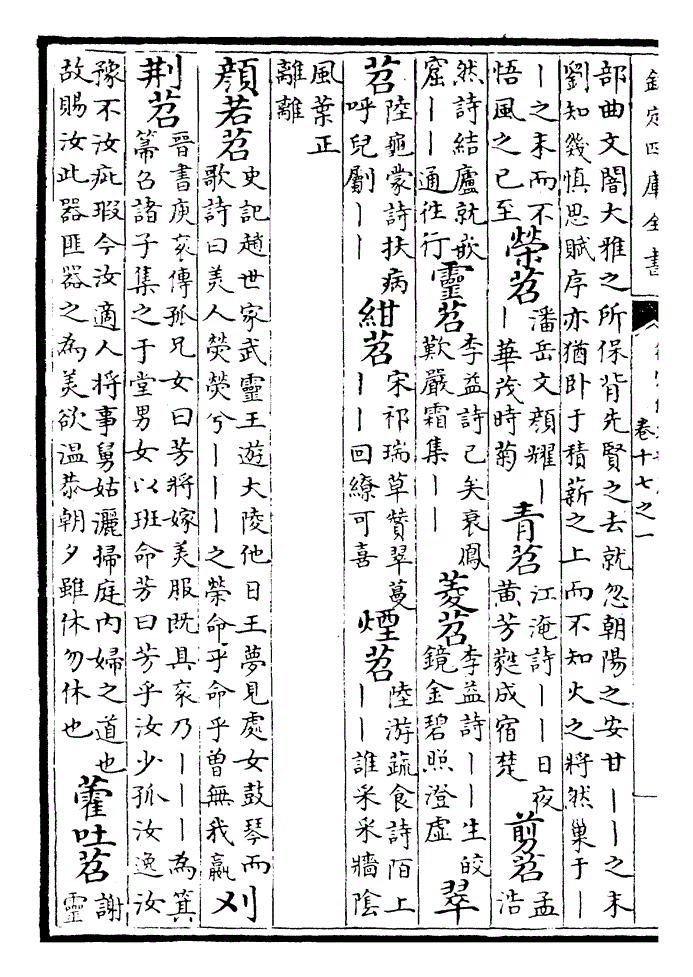 欽定四庫全書
卷十七之一
部曲文闇大雅之所保背先賢之去就忽朝陽之安甘丨丨之末
劉知幾慎思賦序亦猶卧于積薪之上而不知火之將然巢于丨
丨之末而不悟風之已至 榮苕 潘岳文顔耀丨丨華茂時菊 青苕 江淹詩丨丨日夜黄芳蕤成宿楚 剪苕 孟浩
然詩結廬就嵌窟丨丨通往行 靈苕 李益詩已矣衰鳳歎嚴霜集丨丨 菱苕 李益詩丨丨生皎鏡金碧照澄虛 翠
苕 陸龜蒙詩扶病呼兒劚丨丨 紺苕 宋祁瑞草贊翠蔓丨丨回繚可喜 煙苕 陸游蔬食詩陌上丨丨誰采采牆陰
風葉正離離
顔若苕 史記趙世家武靈王遊大陵他日王夢見處女鼓琴而歌詩曰美人熒熒兮丨丨丨之榮命乎命乎曾無我嬴 刈
荆苕 晉書庾衮傳孤兄女曰芳將嫁美服既具衮乃丨丨丨為箕箒召諸子集之于堂男女以班命芳曰芳乎汝少孤汝逸汝
豫不汝疵瑕今汝適人將事舅姑灑掃庭内婦之道也故賜汝此器匪器之為美欲温恭朝夕雖休勿休也 藿吐苕 謝靈